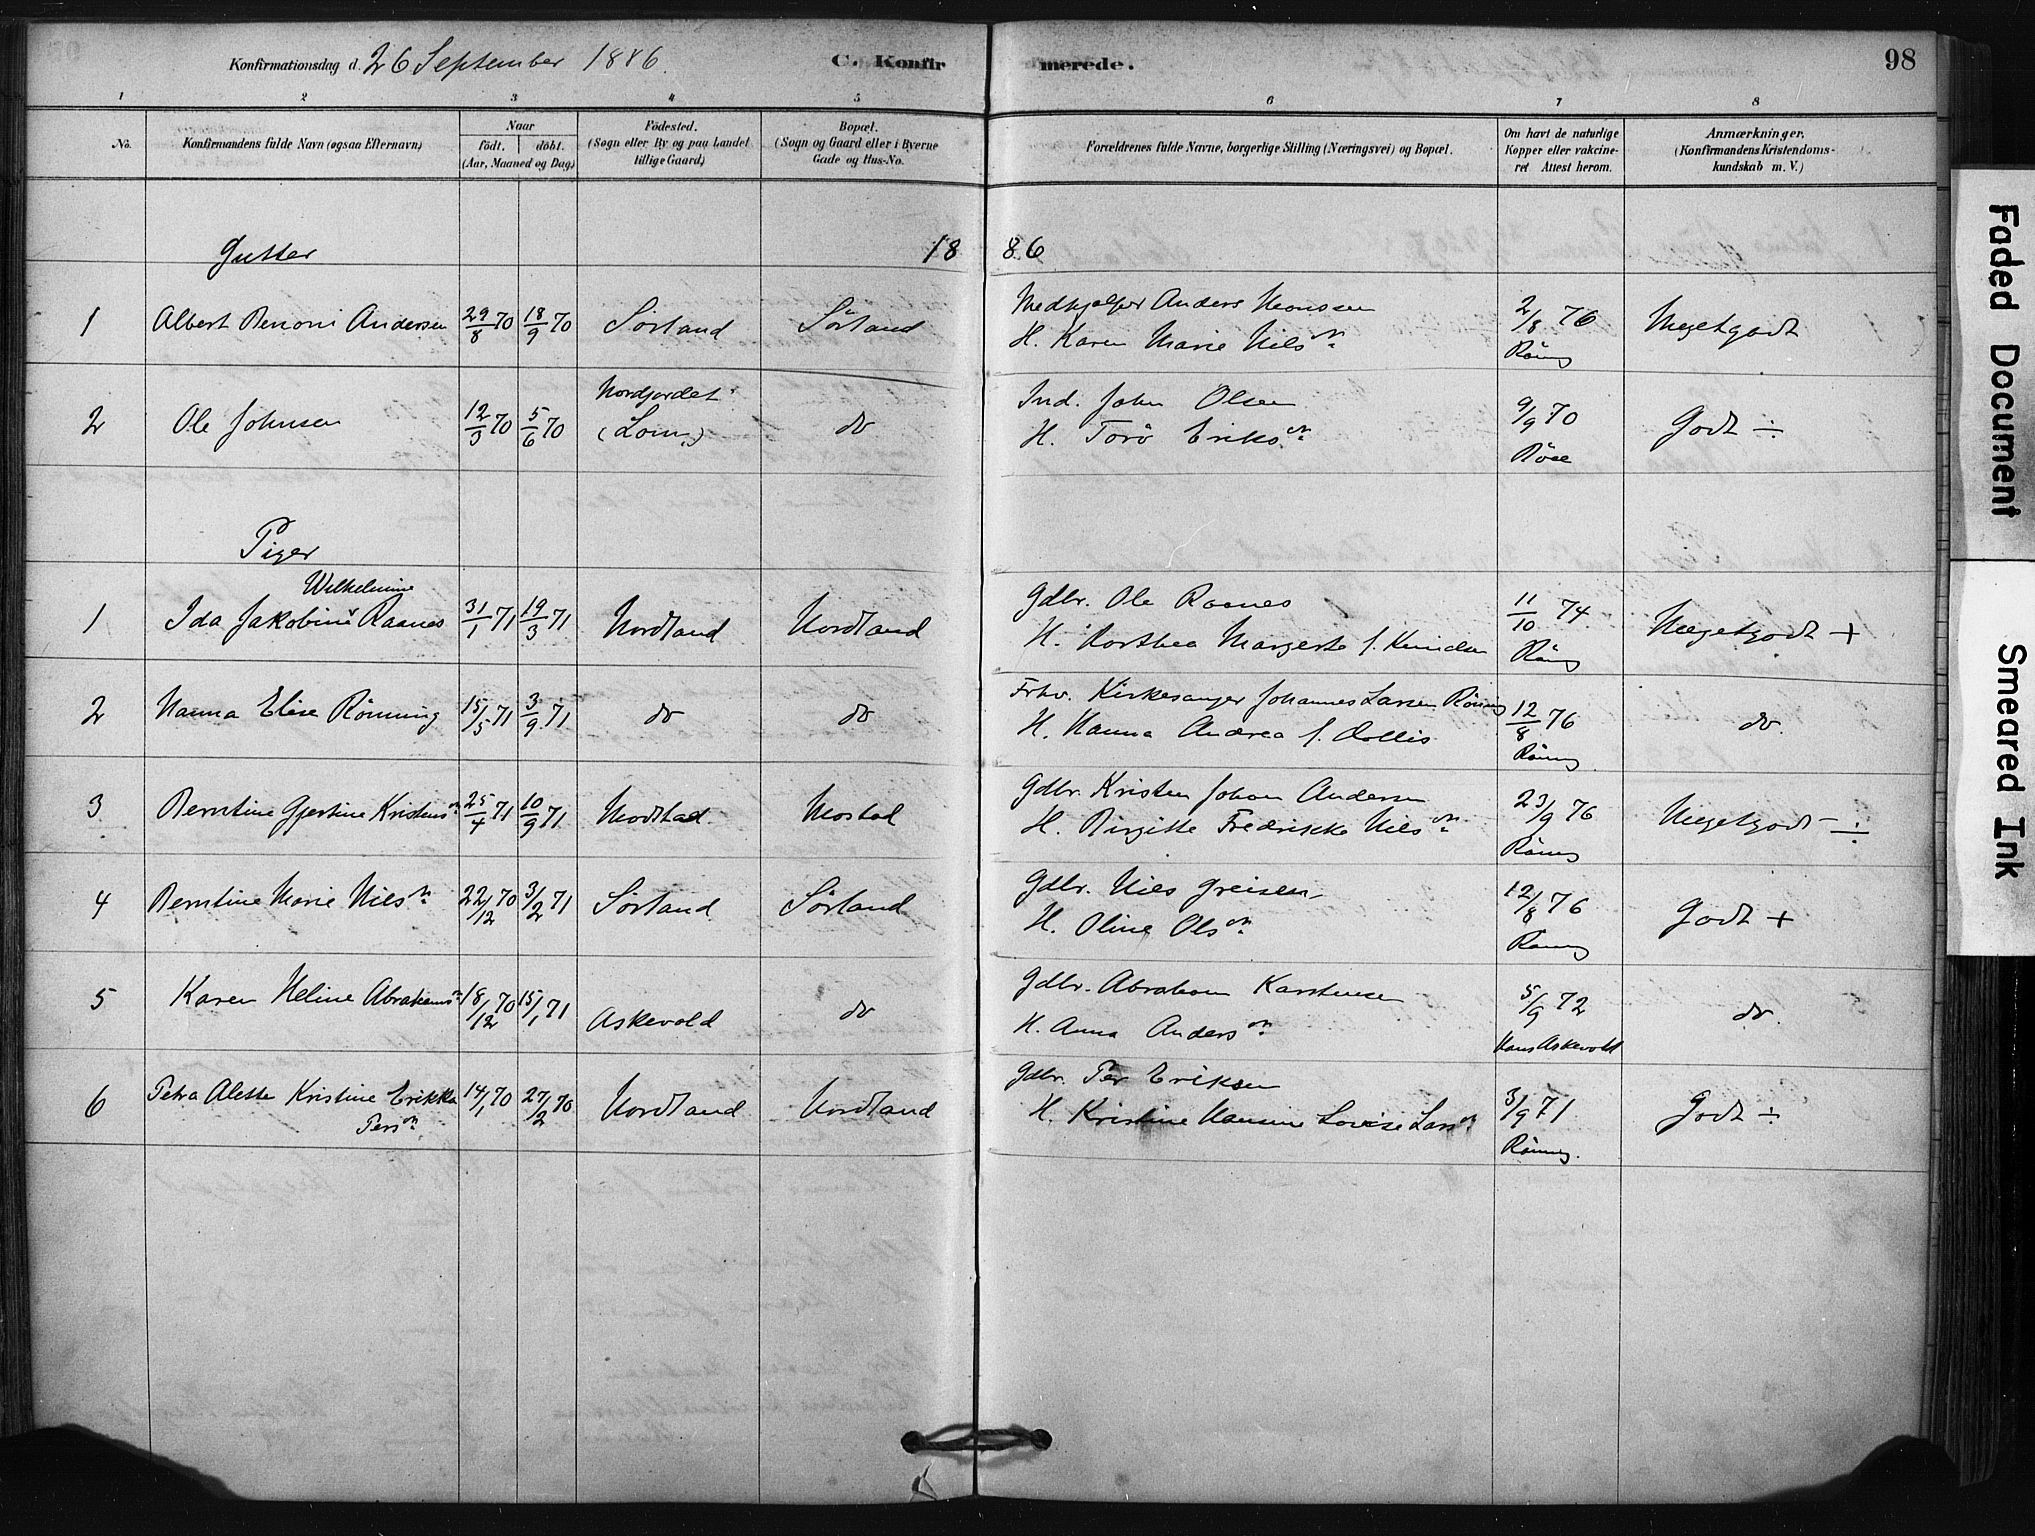 Konfirmationsdag d. 26 September 1886. C. Konfirmerede. 98
1 2 3 4 5 6 7 8
No. Konfirmandens fulde Navn (ogsaa Efternavn) Naar født. døbt. (Aar, Maaned og Dag) Födested. (Sogn eller By og paa Landet tillige Gaard) Bopæl. (Sogn og Gaard eller i Byerne Gade og Hus-No. Forældrenes fulde Navne, borgerlige Stilling (Næringsvei) og Bopæl. Om havt de naturlige Kopper eller vakcineret Attest herom. Anmærkninger, (Konfirmandens Kristendomskundskab m. V.)
Gutter 1886
1 Albert Benoni Andersen 29/8 70 18/9 70 Sörland Sörland Medhjelper Anders Monssen 2/8 76 Megetgodt
H. Karen Marie Nilsdn
Rönng
2 Ole Johnsen 12/3 70 5/6 70 Nordfjordet (Lom) do Ind. John Olsen 9/9 70 Godt ÷
H. Torö Eriksdn
Röst
Piger
Wilhelmine
1 Ida Jakobine Raanes 31/1 71 19/3 71 Nordland Nordland Gdbr. Ole Raanes 11/10 74 Megetgodt +
H. Dorthea Margrete f. Knudsen
Rönng
2 Hanna Elise Rönning 15/5 71 3/9 71 do do Frhv. Kirkesanger Johannes Larsen Rönng 12/8 76 do.
H. Hanna Andrea f. Dollis
Rönng
3 Berntine Gjertine Kristensdn 25/4 71 10/9 71 Mostad Mostad Gdbr. Kristen Johan Andersen 23/9 76 Megetgodt ÷
H. Birgitte Fredrikke Nilsdn
Rönng
4 Berntine Marie Nilsdn 22/12 70 3/2 71 Sörland Sörland Gdbr. Nils Greisen 12/8 76 Godt +
H. Oline Olsdn
Rönng
5 Karen Heline Abrahamsdn 18/12 70 15/1 71 Askevold do Gdbr. Abraham Karstensen 5/9 72 do.
H. Anna Andersdn
Hans Askevold
6 Petra Alette Kristine Erikka Persdn 14/1 70 27/2 70 Nordland Nordland Gdbr. Per Eriksen 3/9 71 Godt ÷
H. Kristine Hansine Lovise Larsdn
Rönng.
Faded Document
Smeared Ink